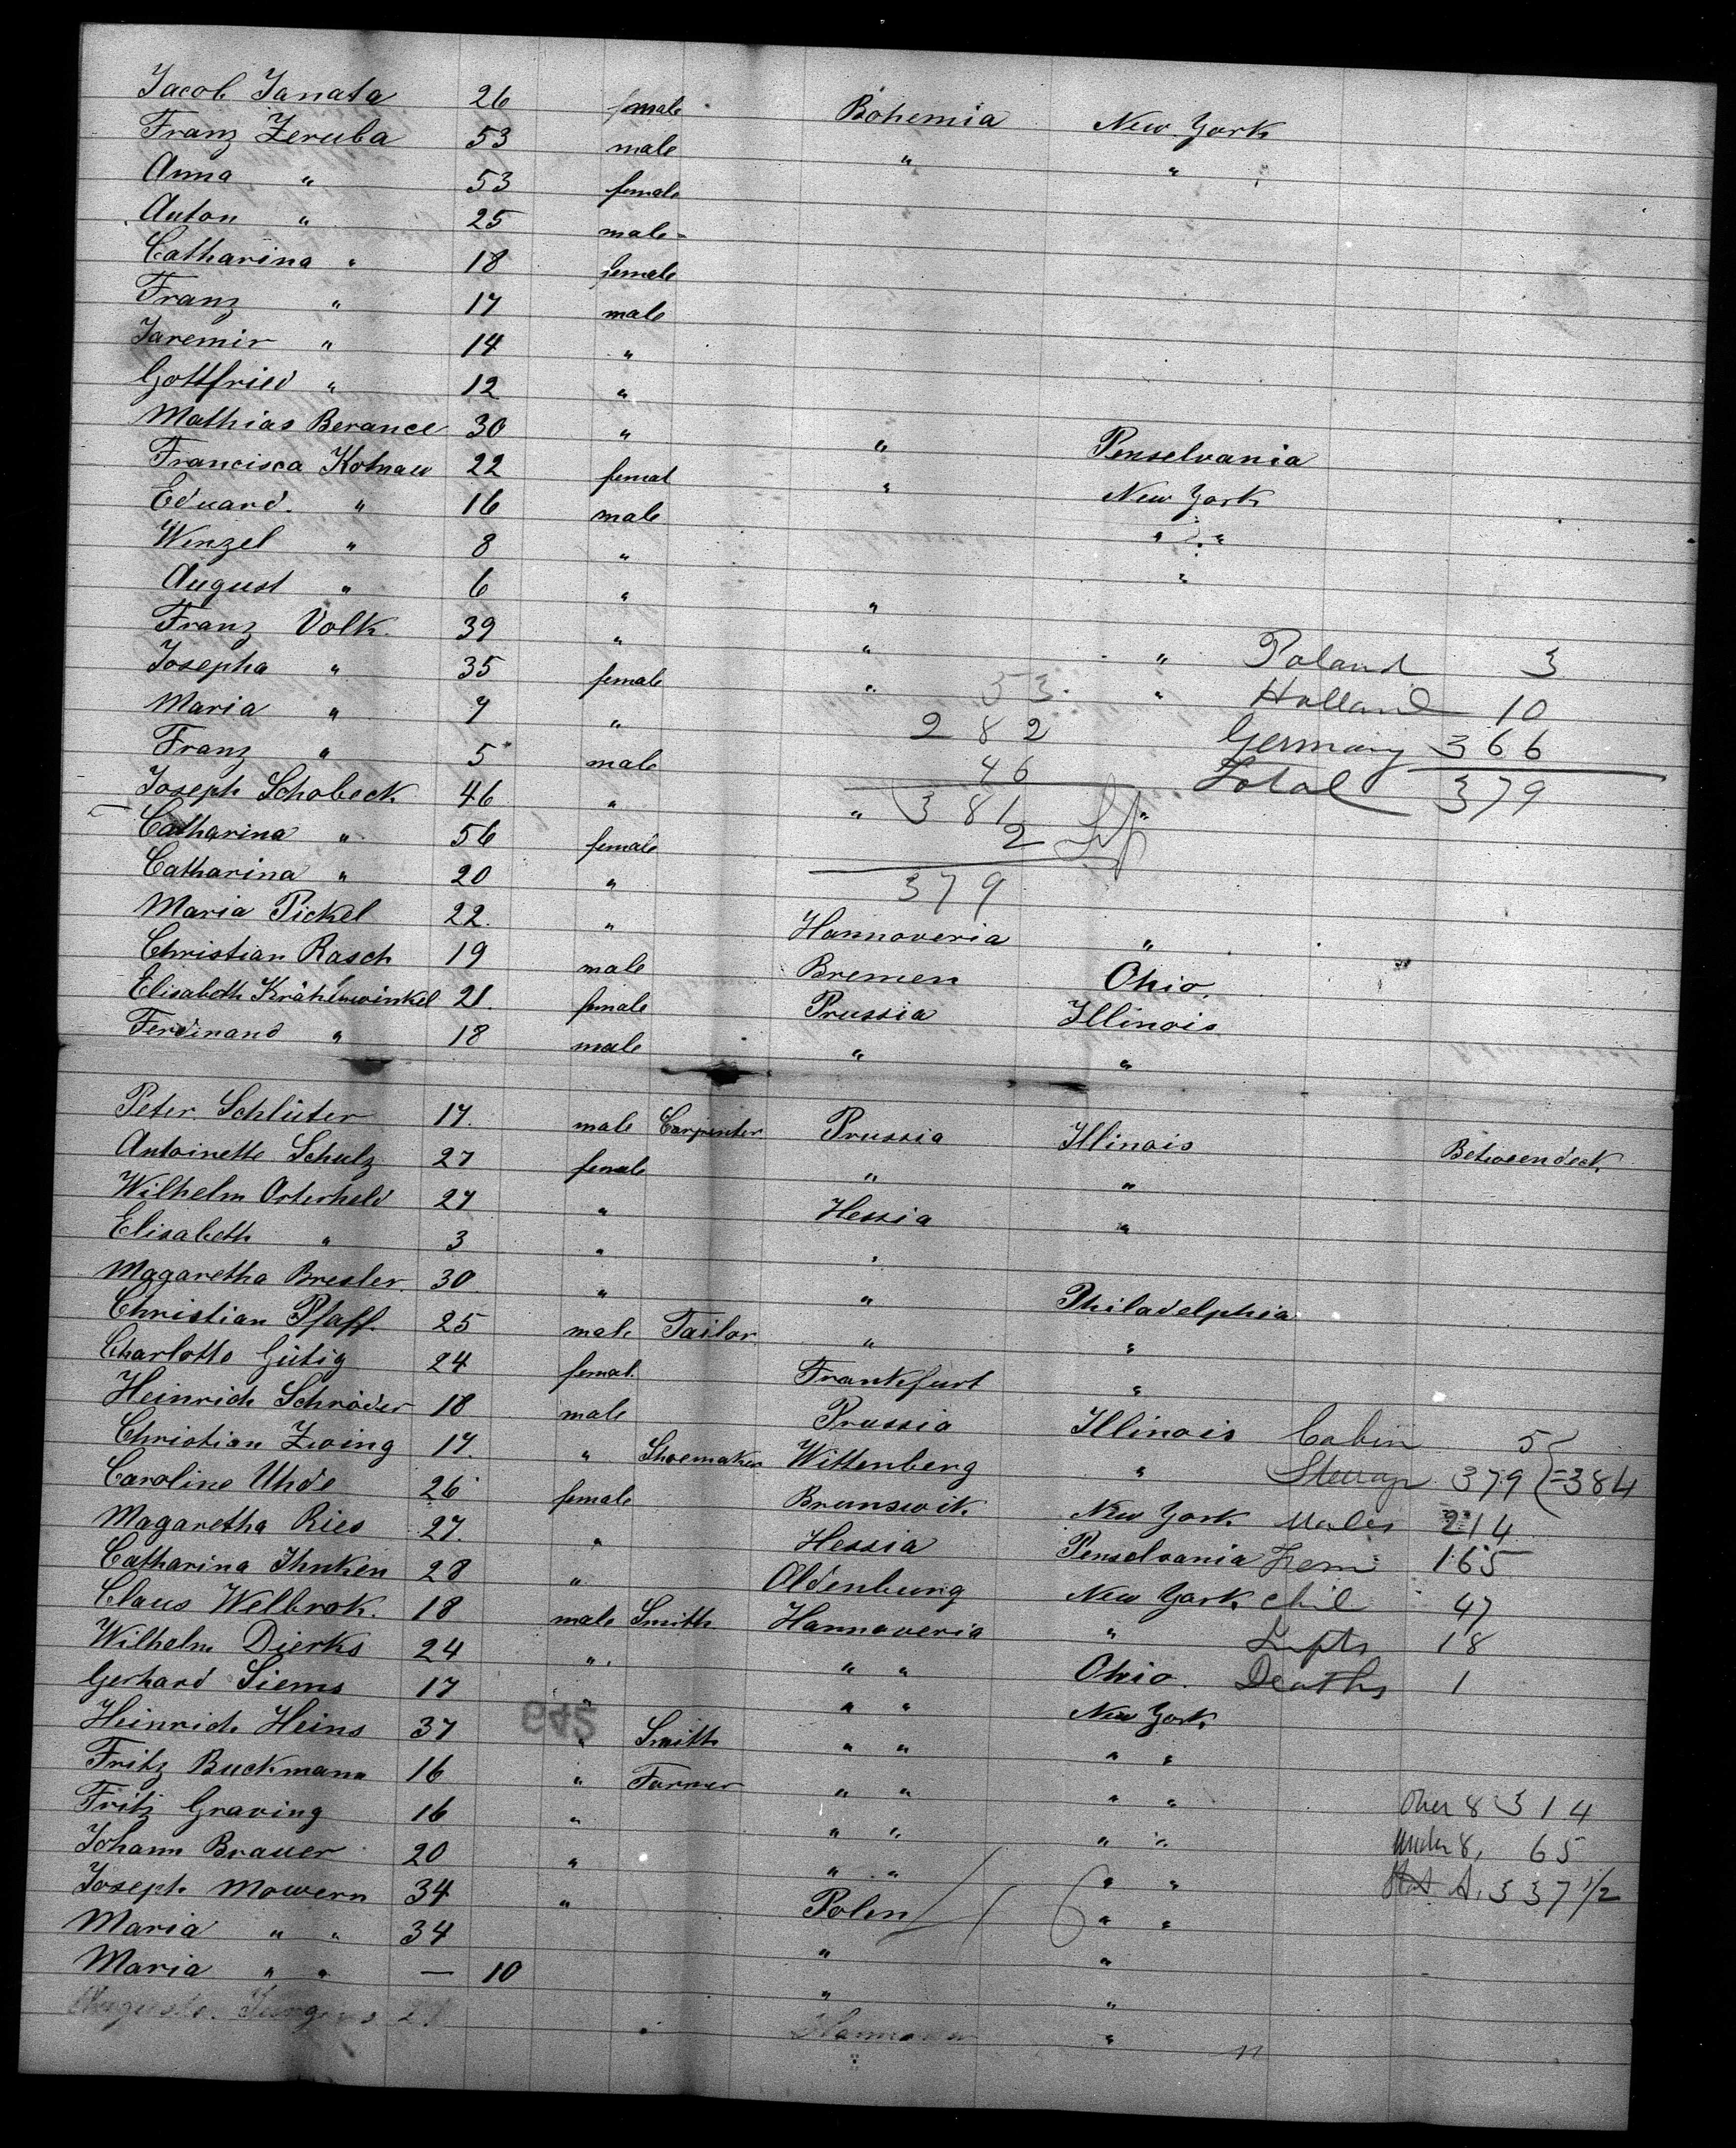 Jacob Janata 26 female Bohemia New York
Franz Zeruba 53 male " "
Anna " 53 female
Anton " 25 male
Catharina " 18 female
Franz " 17 male
Jaremir " 14 "
Gottfried " 12 "
Mathias Berance 30 " " Penselvania
Francisca Kotnau 22 femal " New York
Eduard. " 16 male " "
Wenzel " 8 " "
August " 6 " "
Franz Volk. 39 " " " Poland 3
Josepha " 35 female " 53 " Holland 10
Maria " 7 " 282 Germany 366
Franz " 5 male 46 Total 379
Joseph Schobeck 46 " " 381 "
Catharina " 56 female 2
Catharina " 20 " 379
Maria Pickel 22. " Hannoveria "
Christian Rasch 19 male Bremen Ohio.
Elisabeth Krähenwinkel 21. female Prussia Illinois
Ferdinand " 18 male " "
Peter Schlüter 17. male Carpenter Prussia Illinois Betweendeck
Antoinette Schulz 27 female " "
Wilhelm Osterheld 27 " Hessia "
Elisabeth " 3 " "
Magaretha Bresler. 30 " " Philadelphia
Christian Pfaff. 25 male Tailor " "
Charlotte Gütig 24 femal. Frankfurt "
Heinrich Schröder 18 male Prussia Illinois Cabin 5
Christian Zwing 17. " Shoemaker Wittenberg " Steerage 379 } = 384
Caroline Uhde 26 female Brunswik New York Males 214
Magaretha Ries 27. " Hessia Penselvania Fem 165
Catharina Ihnken 28 " Oldenburg New York Chil 47
Claus Welbrok. 18 male Smith Hannoveria " Infts 18
Wilhelm Dierks 24 " " " Ohio. Deaths 1
Gerhard Siems 17 " " " New York
Heinrich Heins 37 " Smith " " " "
Fritz Buckmann 16 " Farmer " " " "
Fritz Graving 16 " " " " " Over 8 314
Johann Brauer 20 " " " " " Under 8, 65
Joseph Mowern 34 " Polen " " A. 337 1/2
Maria " " 34 " "
Maria " " — 10 " "
"